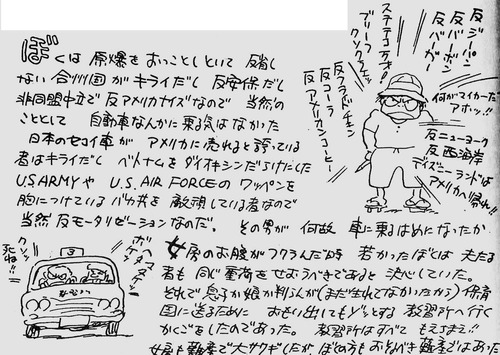 ぼくは 原爆をおっことしといて 反省し
ない合州国がキライだし 反安保だし
非同盟中立で反アメリカナイズなので 当然の
こととして 自動車なんかに乗る気はなかった
日本のセコイ車が アメリカに売れると誇っている
者はキライだし ベトナムをダイオキシンだらけにした
U.S.ARMYや U.S. AIR FORCEの ワッペンを
胸につけているバカ共を 敵視している者なので
当然反モータリゼーションなのだ。 その男が 何故 車に乗るはめになったか
女房のお腹がフクランだ時 若かったぼくは 夫たる
者も 同じ重荷をせおうべきであると 決心していた。
それで息子か娘か判らんが(まだ生れてなかったから) 保育
園に送るために おもい出してもゾッとする 教習所へ行く
かくごをしたのであった。 教習所はすべて もえちまえ!!
女房も難産で大サワギしたが、ぼくの方もおそるべき難産ではあった
反ジーパン
反バーボン
反バーガー
ステテコ万才!
ブリーフ
クソクラエッ
反フライドチキン
反コーラ
反アメリカンコーヒー
何がマイカーだ
アホッ!!
反ニューヨーク
反西海岸
ディズニーランドは
アメリカへ帰れ!!
クソッ
死ね!!